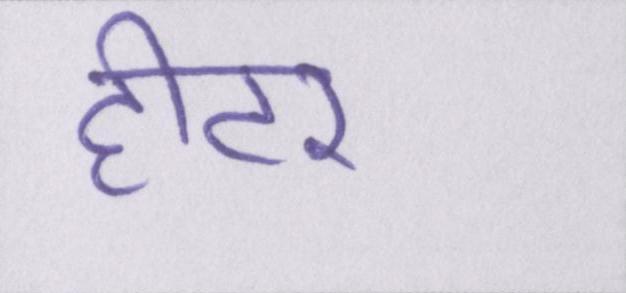 हीटर